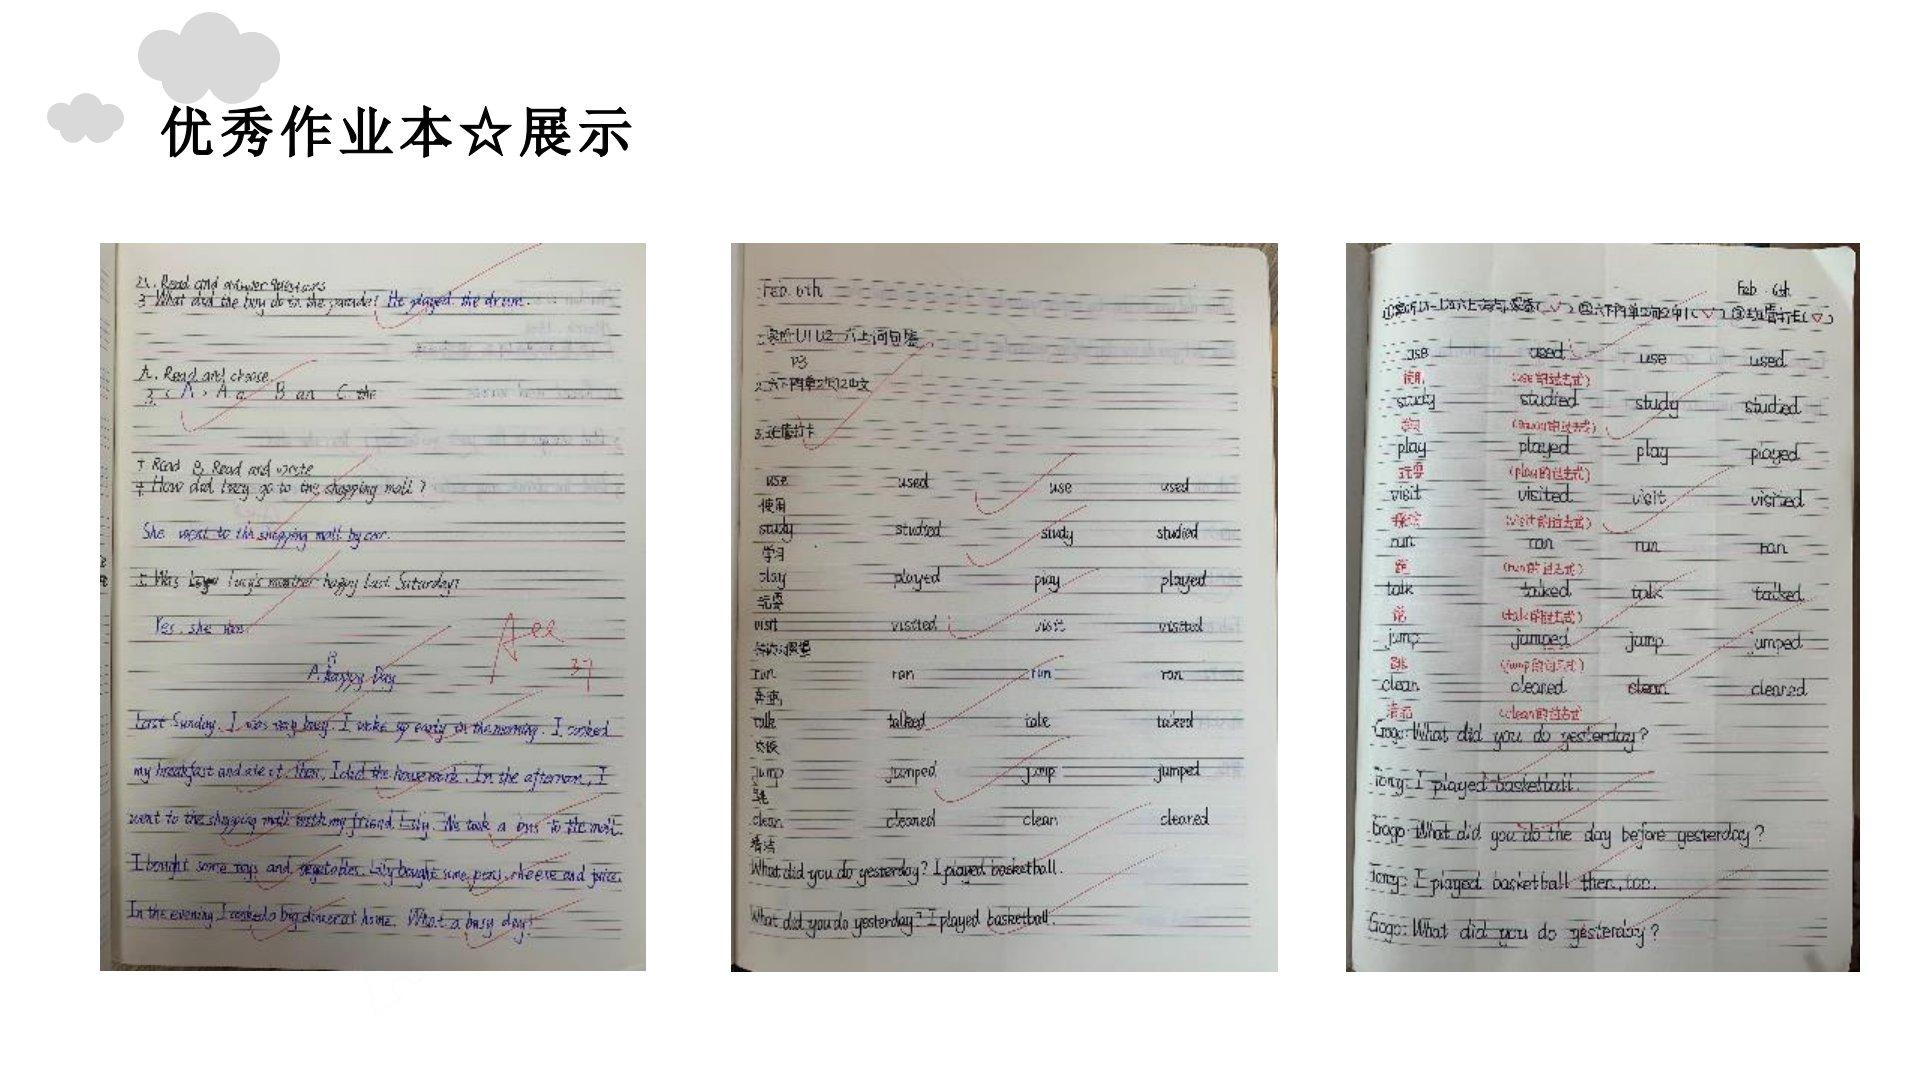 优秀作业本☆展示
Read and answer
3. What did the boy do in the parade? He played the drum.
九. Read and choose.
3. ( A ) A. a B. an C. the
Read and write
4. How did Lucy go to the shopping mall?
She went to the shopping mall by car.
5. Was Lucy's mother happy last Saturday?
Yes, she was.
A Happy Day
Last Sunday, I was very busy. I woke up early in the morning. I cooked
my breakfast and ate it. Then, I did the housework. In the afternoon, I
went to the shopping mall with my friend Lily. We took a bus to the mall.
I bought some and vegetables. Lily bought some cheese and juice.
In the evening I cooked a big dinner at home. What a busy day!
Feb. 6th
1. 听U1 U2 六上词句
P3
2. 六下四单
3. 打卡
use used use used
使用
study studied study studied
学习
play played play played
玩耍
visit visited visit visited
run ran run ran
talk talked talk talked
jump jumped jump jumped
跳
clean cleaned clean cleaned
清洁
What did you do yesterday? I played basketball.
What did you do yesterday? I played basketball.
Feb. 6th
use used use used
使用 (use的过去式)
study studied study studied
学习 (study的过去式)
play played play played
玩耍 (play的过去式)
visit visited visit visited
(visit的过去式)
run ran run ran
跑 (run的过去式)
talk talked talk talked
(talk的过去式)
jump jumped jump jumped
跳 (jump的过去式)
clean cleaned clean cleaned
清洁 (clean的过去式)
Gogo: What did you do yesterday?
Tony: I played basketball.
Gogo: What did you do the day before yesterday?
Tony: I played basketball then, too.
Gogo: What did you do yesterday?